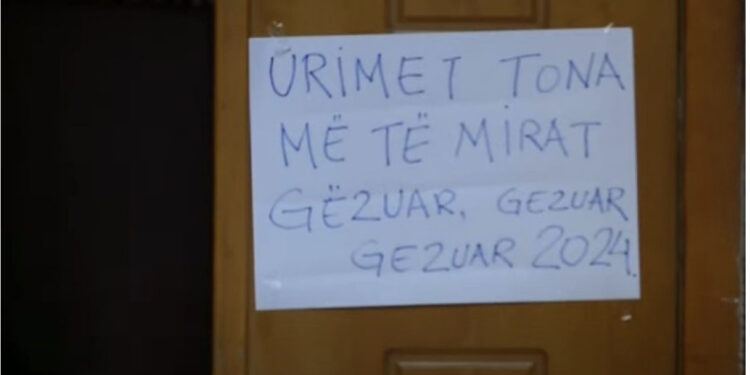 URIMET TONA
MË TË MIRAT
GËZUAR, GEZUAR
GEZUAR 2024.